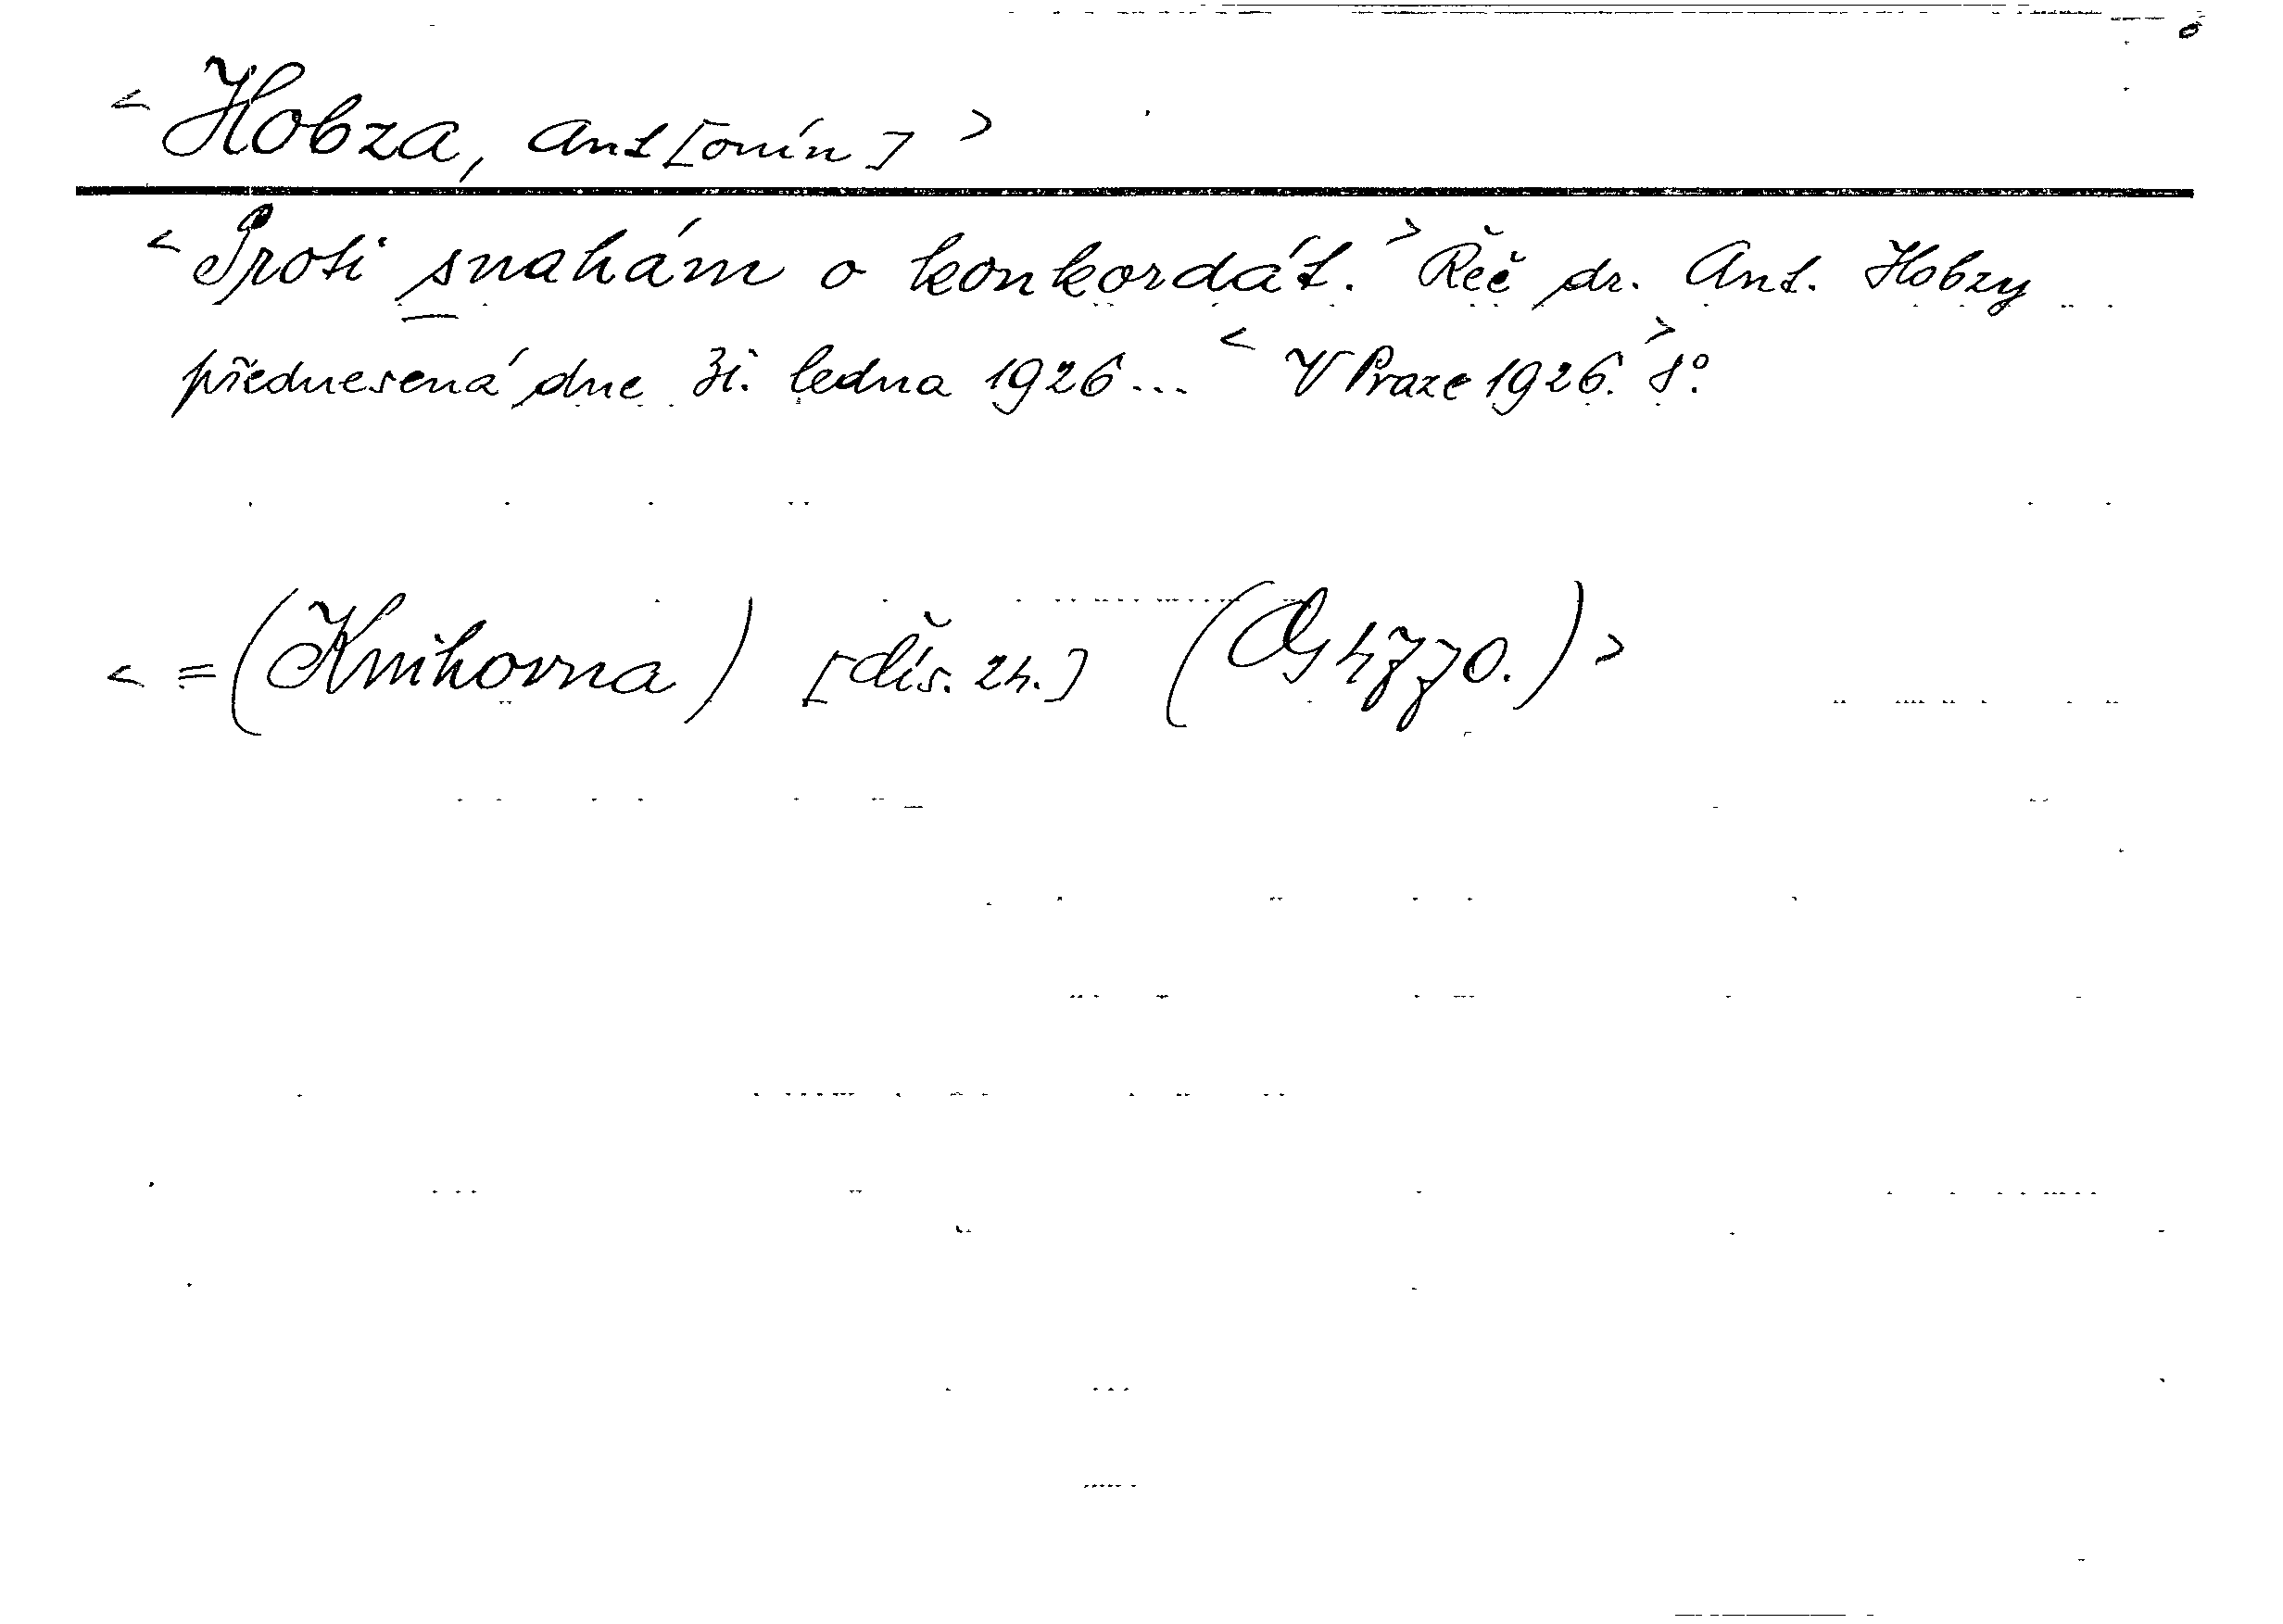 < Hobza, Ant[onín] >
< Proti snahám o konkordát. > Řeč dr. Ant. Hobzy
přednesená dne 31. ledna 1926... < V Praze 1926. > 8°.
< = (Knihovna) [čís. 24.] (Og 4770.) >